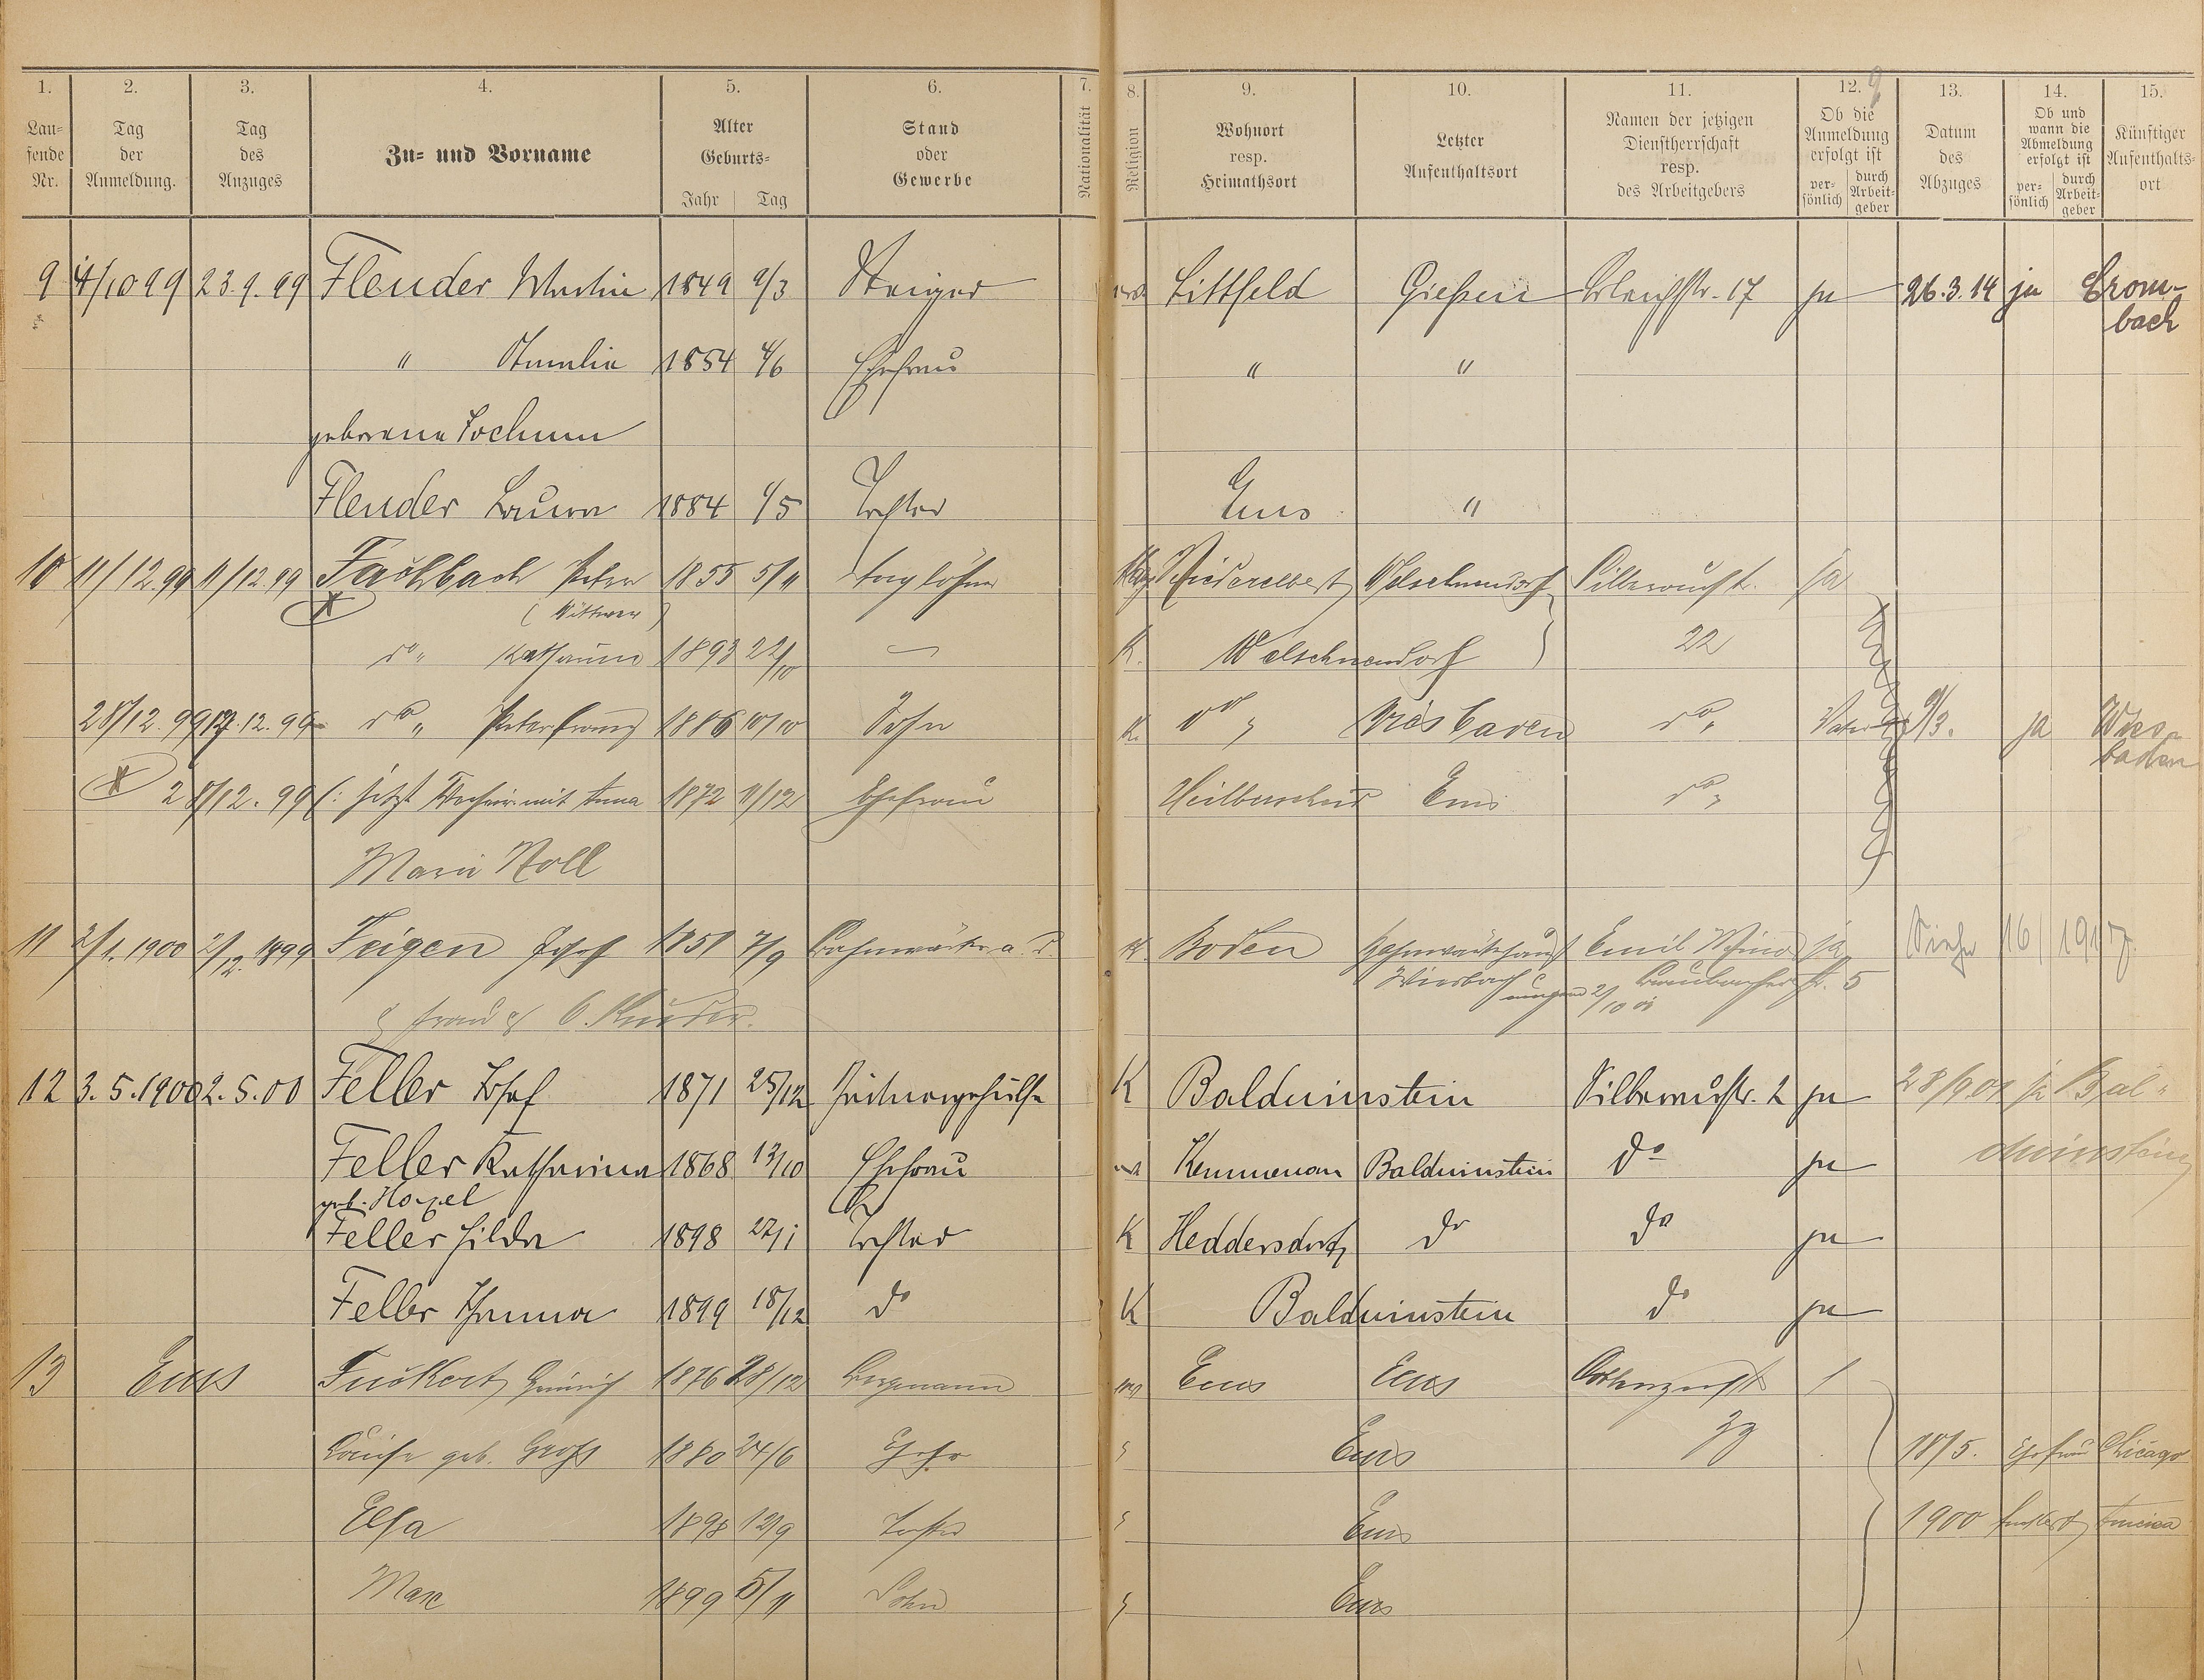 1. 2. 3. 4. 5. 6. 7. 8. 9. 10. 11. 12. 13. 14. 15.
Laufende Nr.
Tag der Anmeldung.
Tag des Anzuges
Zu- und Vorname
Alter Geburts- Jahr Tag
Stand oder Gewerbe
Nationalität
Religion
Wohnort resp. Heimathsort
Letzter Aufenthaltsort
Namen der jetzigen Dienstherrschaft resp. des Arbeitgebers
Ob die Anmeldung erfolgt ist persönlich durch Arbeitgeber
Datum des Abzuges
Ob und wann die Abmeldung erfolgt ist persönlich durch Arbeitgeber
Künftiger Aufenthalts-ort
9 4/10 99 23.9.99 Flender 1849 9/3 Steiger Littfeld Gießen 17 ja 26.3.14 ja Crom-
bach
" Amalia 1854 4/6 Ehefrau " "
geborene Jochum
Flender Laura 1884 1/5 Tochter Ems "
10 11/12.99 11/12.99 Fachbach Peter 1855 5/11 Taglöhner Niederelbert Welschneudorf Silberaustr. ja
(Wittwer)
do " Katharina 1893 22/10 — K. Welschneudorf 22
28/12.99 .12.99 do " Peter Franz 1886 10/10 Sohn K. do " Wiesbaden do " Vater 9/3. ja Wies-
baden
28/12.99 (: jetzt mit Anna 1872 11/12 Ehefrau Heilberscheid Ems do "
Maria Noll
11 2/1.1900 2/12.1899 Feigen Josef 1851 7/9 Bahnwärter a. D. K. Boden Emil ja Siehe 16/191
2/10 5
12 3.5.1900 2.5.00 Feller Josef 1871 25/12 K Balduinstein Silberaustr. 2 ja 28/9.01 ja Bal-
duinstein
Feller Katharina 1868 13/10 Ehefrau Kemmenau Balduinstein do ja
geb. Hoxel
Feller Hilda 1898 22/1 Tochter K Heddersdorf do do ja
Feller Hanna 1899 18/12 do K Balduinstein do ja
13 Ems Heinrich 1876 28/12 Bergmann Ems Ems
Louise geb. Groß 1880 24/6 Ehefr Ems 18/5. Ehefrau Chicago
Elsa 1898 12/9 Tochter Ems 1900 America
Max 1899 5/11 Sohn Ems